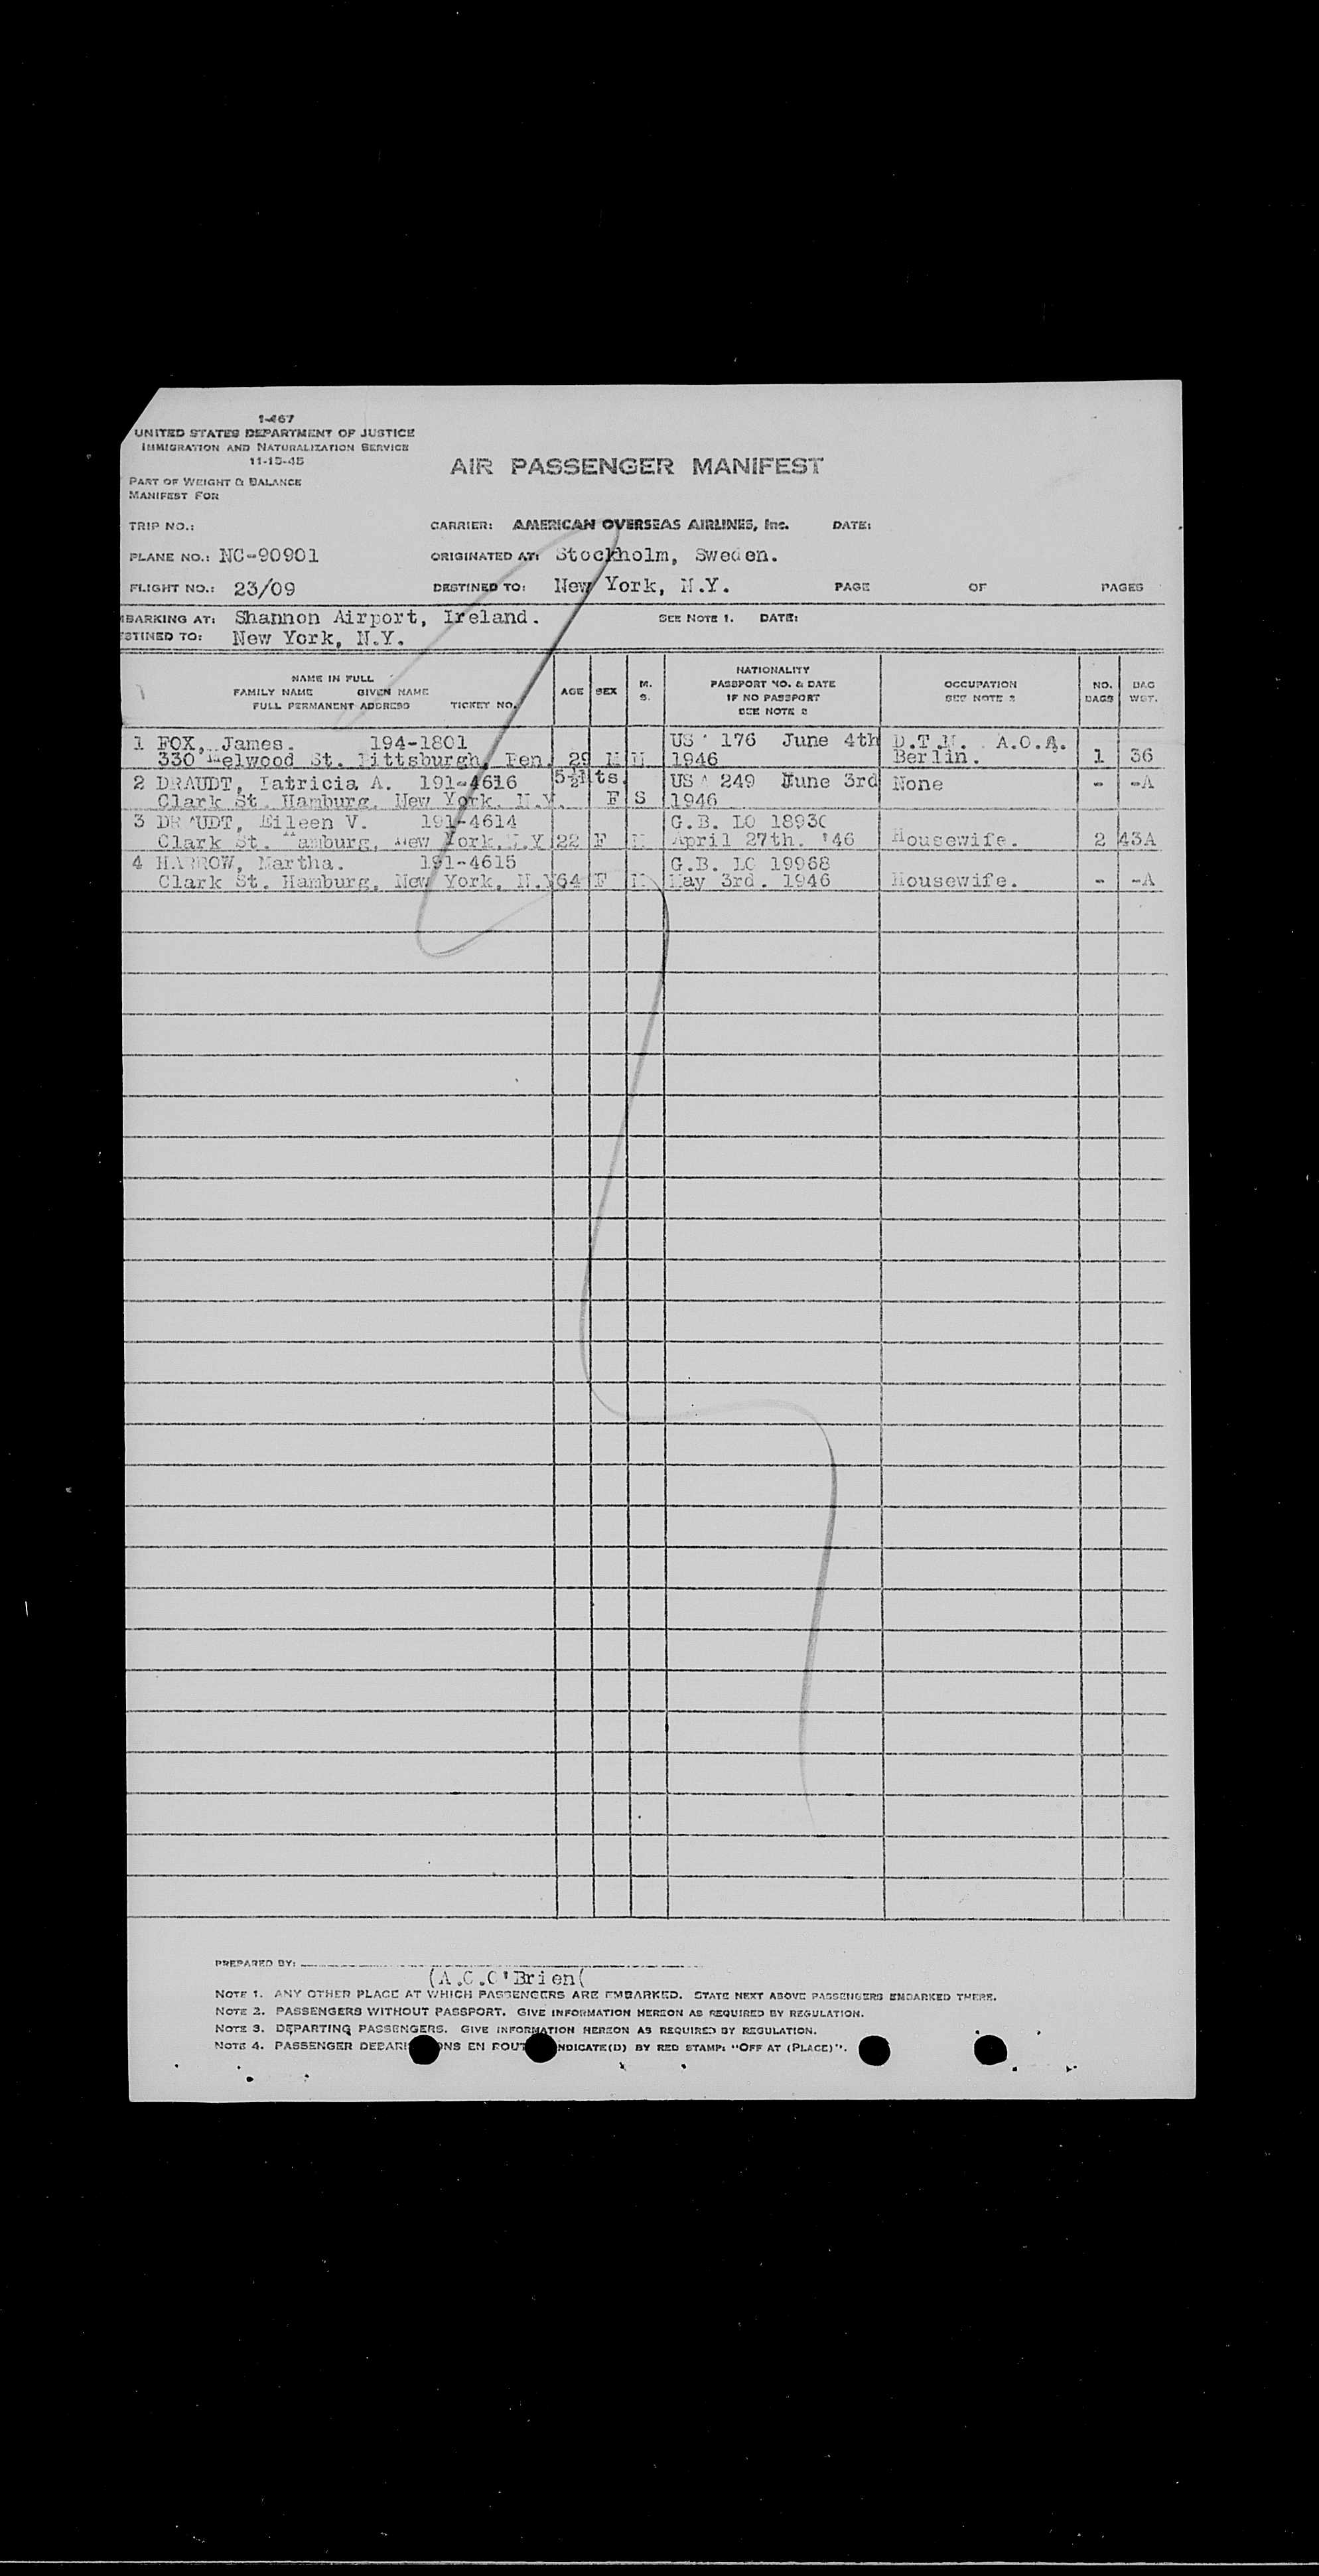 1-467
UNITED STATES DEPARTMENT OF JUSTICE
IMMIGRATION AND NATURALIZATION SERVICE
11-15-45
AIR PASSENGER MANIFEST
PART OF WEIGHT & BALANCE
MANIFEST FOR
TRIP NO.: CARRIER: AMERICAN OVERSEAS AIRLINES, Inc. DATE:
PLANE NO.: NC-90901 ORIGINATED AT: Stockholm, Sweden.
FLIGHT NO.: 23/09 DESTINED TO: New York, N.Y. PAGE OF PAGES
BARKING AT: Shannon Airport, Ireland. SEE NOTE 1. DATE:
STINED TO: New York, N.Y.
NAME IN FULL
FAMILY NAME GIVEN NAME
FULL PERMANENT ADDRESS TICKET NO.
AGE SEX
M.
S.
NATIONALITY
PASSPORT NO. & DATE
IF NO PASSPORT
SEE NOTE 2
OCCUPATION
SEE NOTE 3
NO.
BAGS
BAG
WGT.
1 FOX, James. 194-1801 US 176 June 4th D.T.M. A.O.A.
330 Melwood St. Pittsburgh, Pen. 29 M M 1946 Berlin. 1 36
2 DRAUDT, Patricia A. 191-4616 5½Mts. US 249 June 3rd None - -A
Clark St. Hamburg, New York, N.Y. F S 1946
3 DRAUDT, Eileen V. 191-4614 G.B. LO
Clark St. Hamburg, New York, N.Y 22 F M April 27th. '46 Housewife. 2 43A
4 HARROW, Martha. 191-4615 G.B. LO 19968
Clark St. Hamburg, New York, N.Y 64 F M May 3rd. 1946 Housewife. - -A
PREPARED BY:
(A.C.O'Brien(
NOTE 1. ANY OTHER PLACE AT WHICH PASSENGERS ARE EMBARKED. STATE NEXT ABOVE PASSENGERS EMBARKED THERE.
NOTE 2. PASSENGERS WITHOUT PASSPORT. GIVE INFORMATION HEREON AS REQUIRED BY REGULATION.
NOTE 3. DEPARTING PASSENGERS. GIVE INFORMATION HEREON AS REQUIRED BY REGULATION.
NOTE 4. PASSENGER DEBARKATIONS EN ROUTE INDICATE(D) BY RED STAMP: "OFF AT (PLACE)".